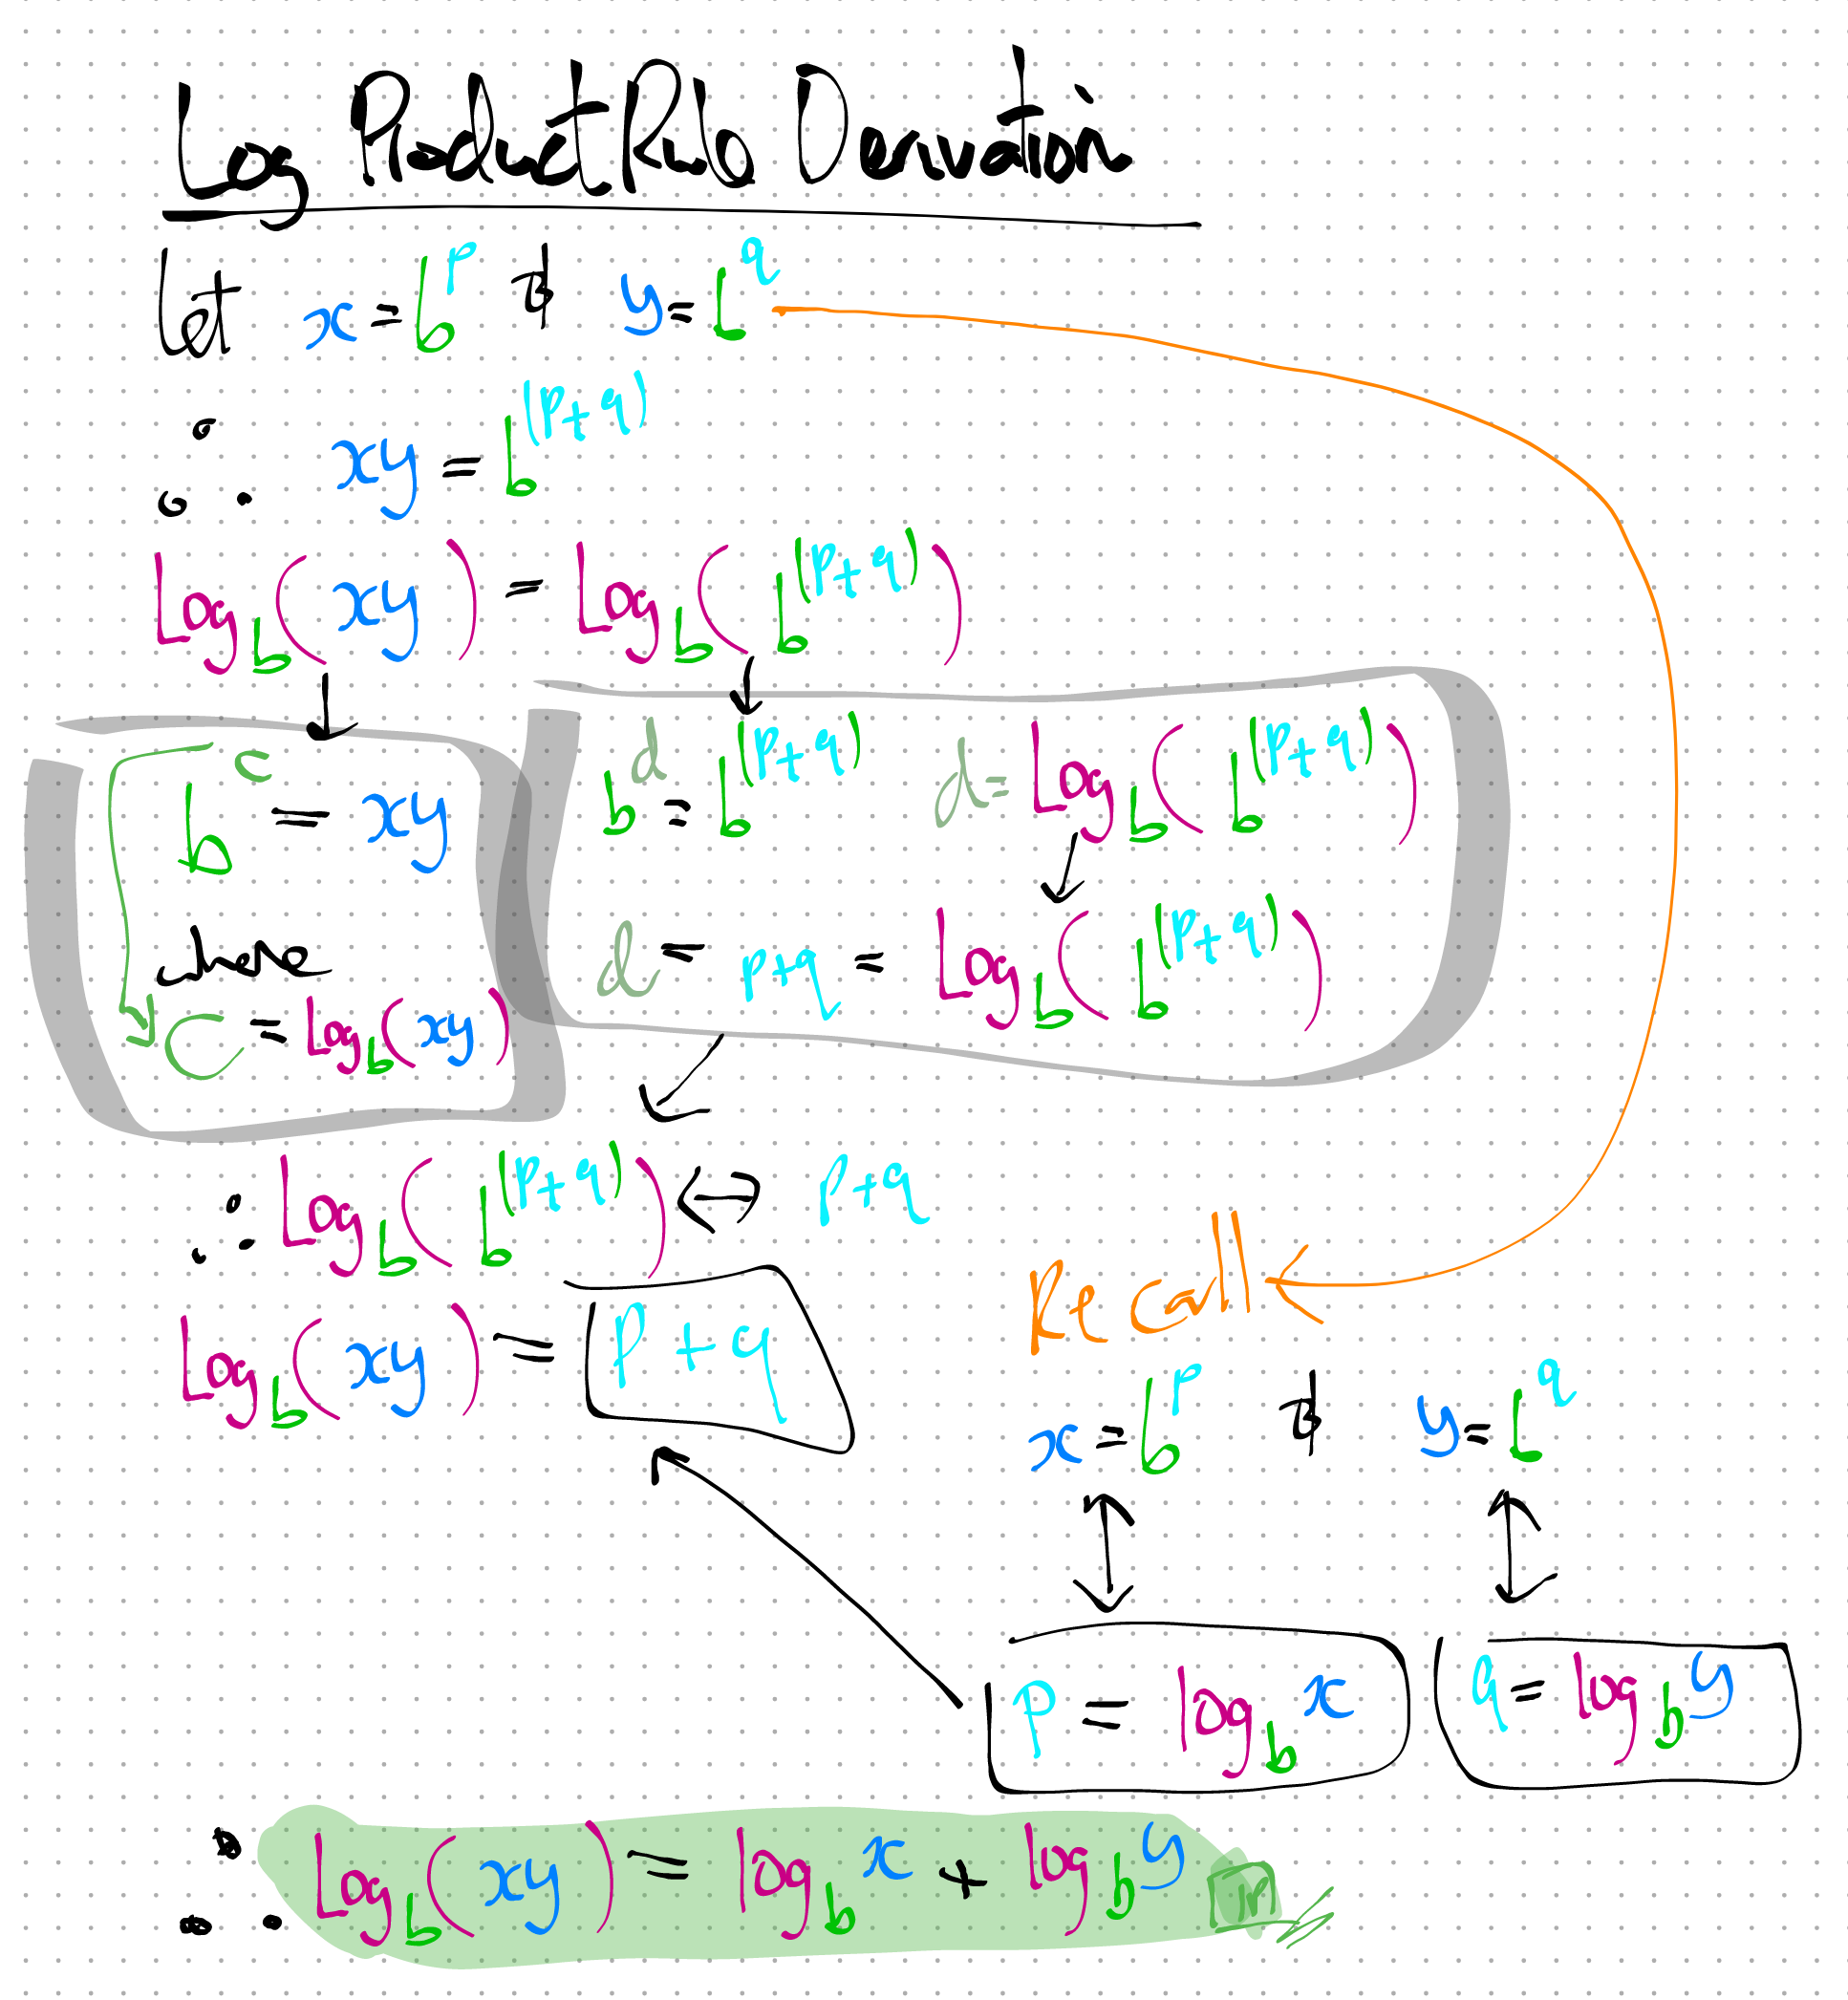 Log Product Rule Derivation
Let x = b^p & y = b^q
∴ xy = b^(p+q)
Log_b(xy) = Log_b(b^(p+q))
b^c = xy
where
c = Log_b(xy)
b^d = b^(p+q) d = Log_b(b^(p+q))
d = p+q = Log_b(b^(p+q))
∴ Log_b(b^(p+q)) ↔ p+q
Log_b(xy) = p+q
Recall
x = b^p & y = b^q
p = log_b x q = log_b y
∴ Log_b(xy) = log_b x + log_b y